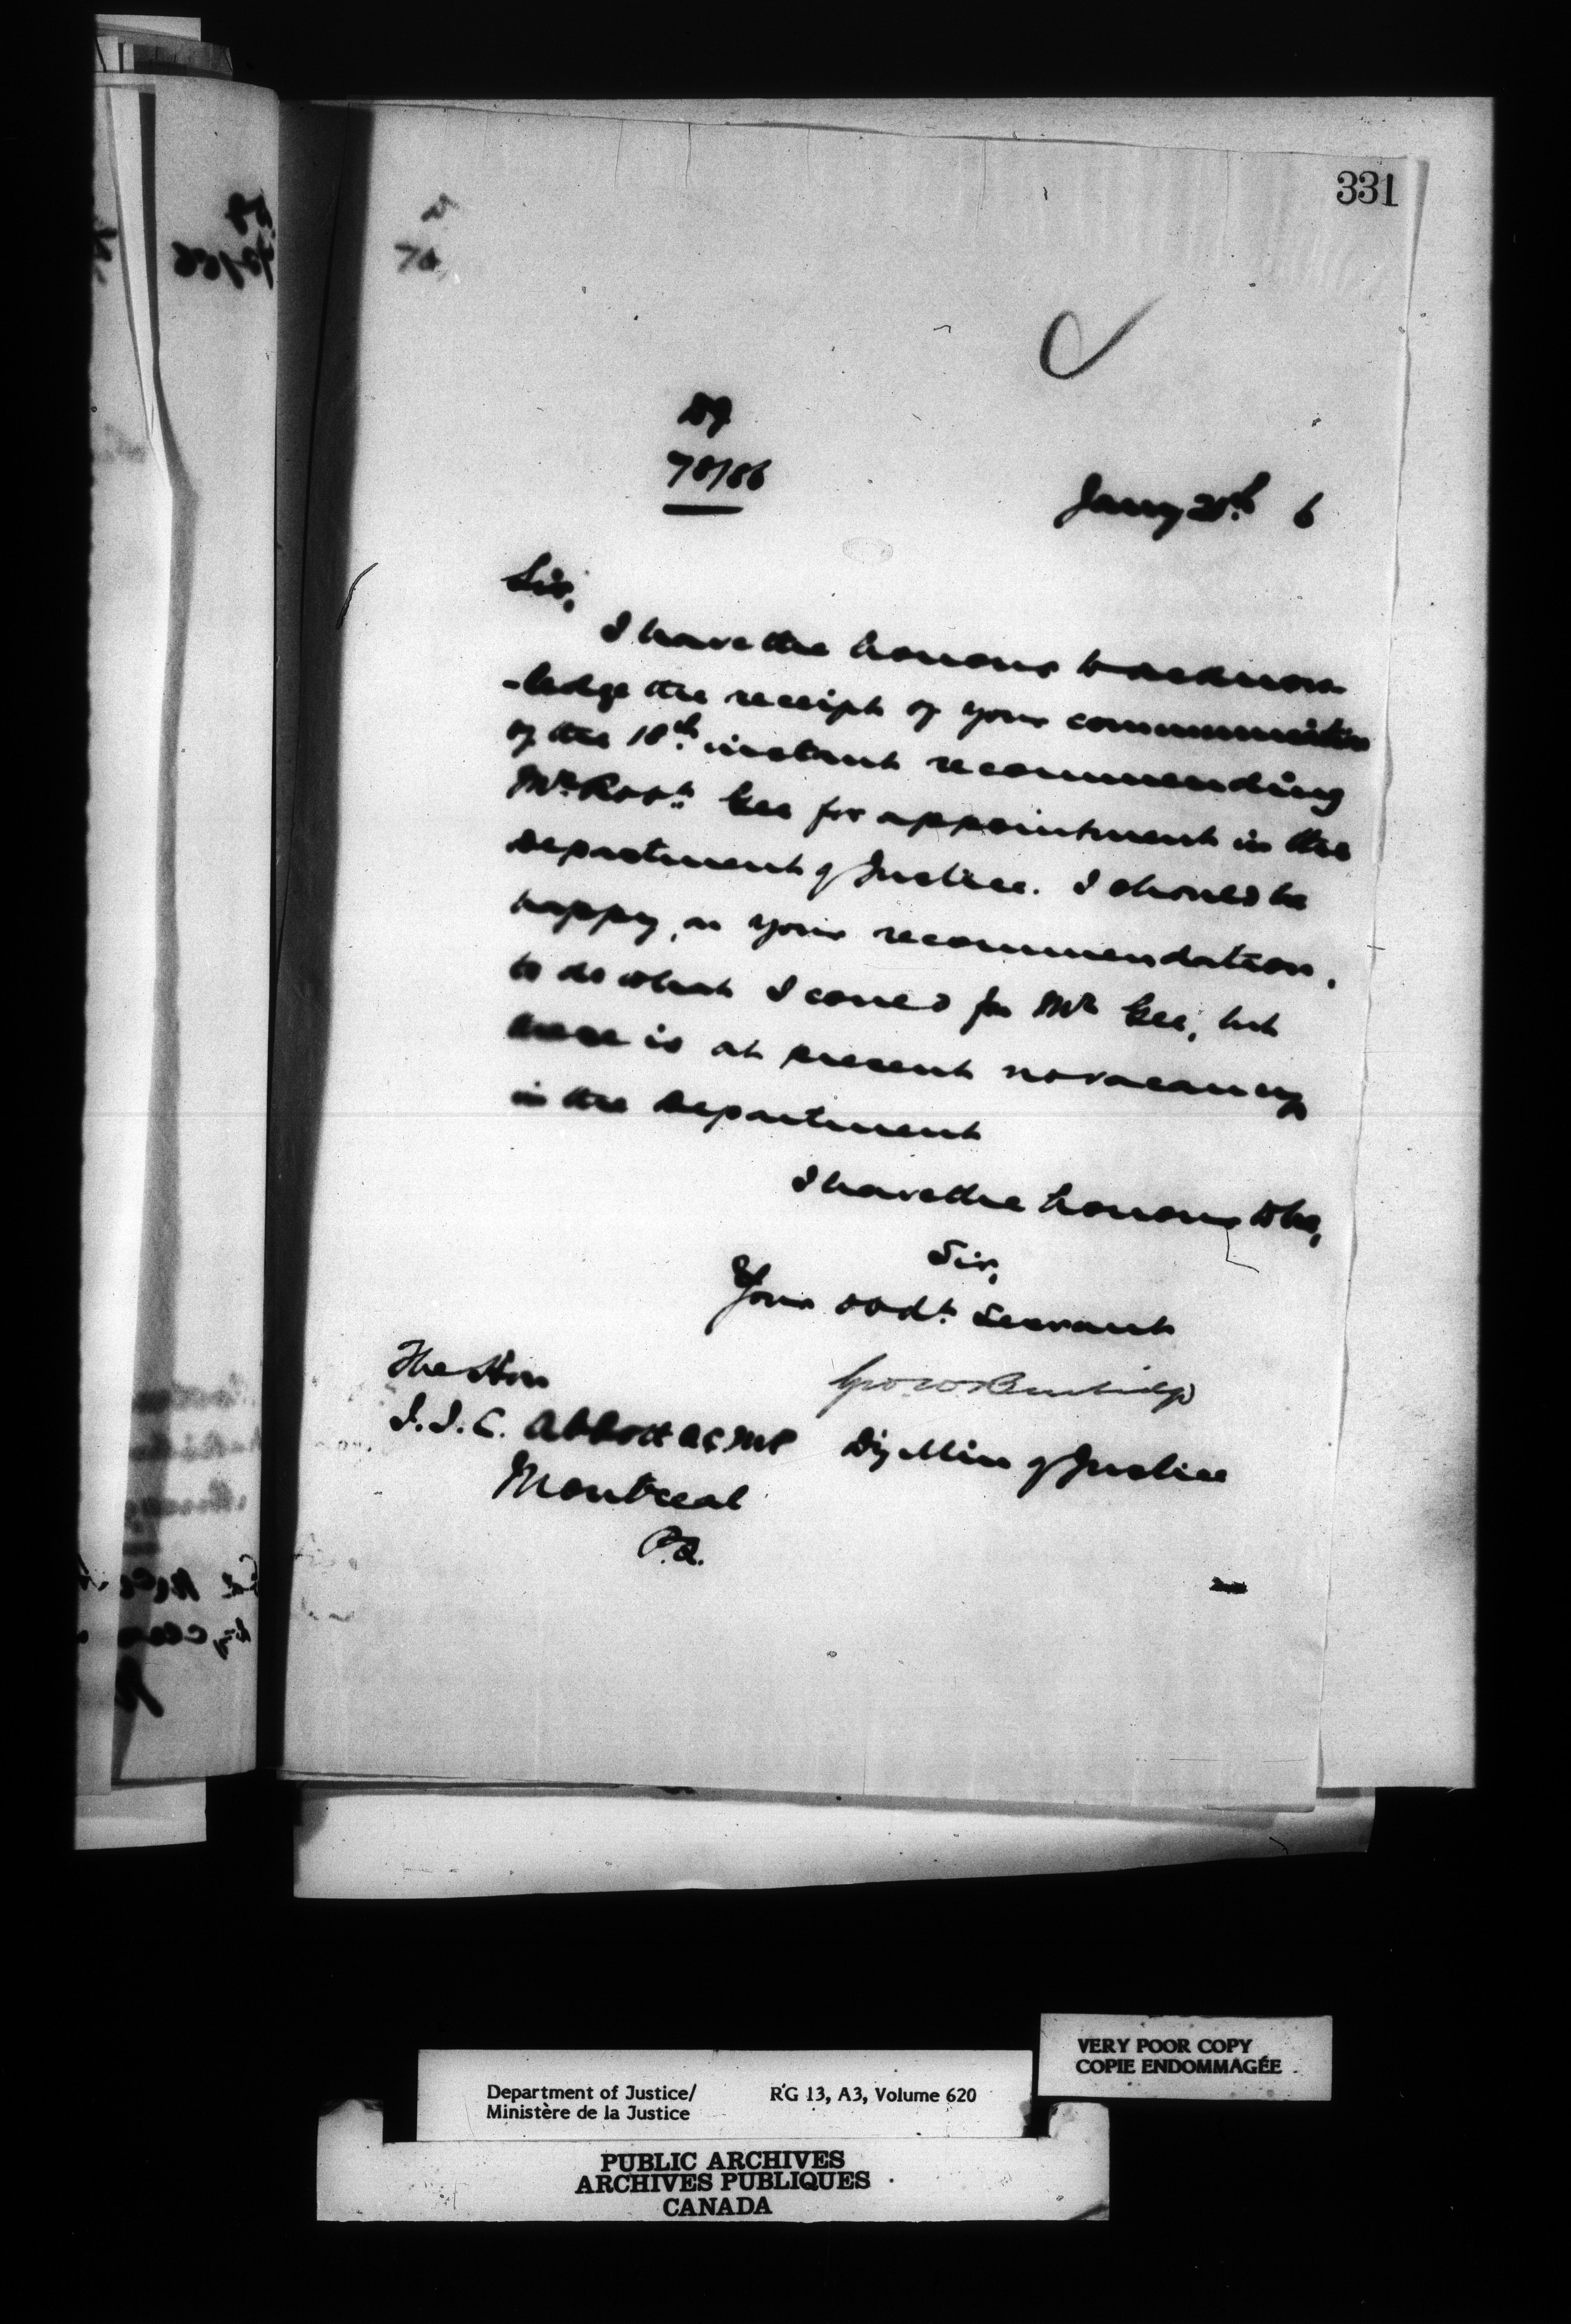 331
78/86
Jany 20th 6
Sir,
I have the honour to acknow
-ledge the receipt of your communication
of the 18th instant recommending
Mr Robt. Gee for appointment in the
Department of Justice. I should be
happy, on your recommendation,
to do what I could for Mr Gee, but
there is at present no vacancy
in the Department
I have the honour to be,
Sir,
Your obdt. Servant
Geo W Burbidge
The Hon
J.J.C. Abbott QC MP Dy Min of Justice
Montreal
P.Q.
VERY POOR COPY
COPIE ENDOMMAGÉE
Department of Justice/ RG 13, A3, Volume 620
Ministère de la Justice
PUBLIC ARCHIVES
ARCHIVES PUBLIQUES
CANADA